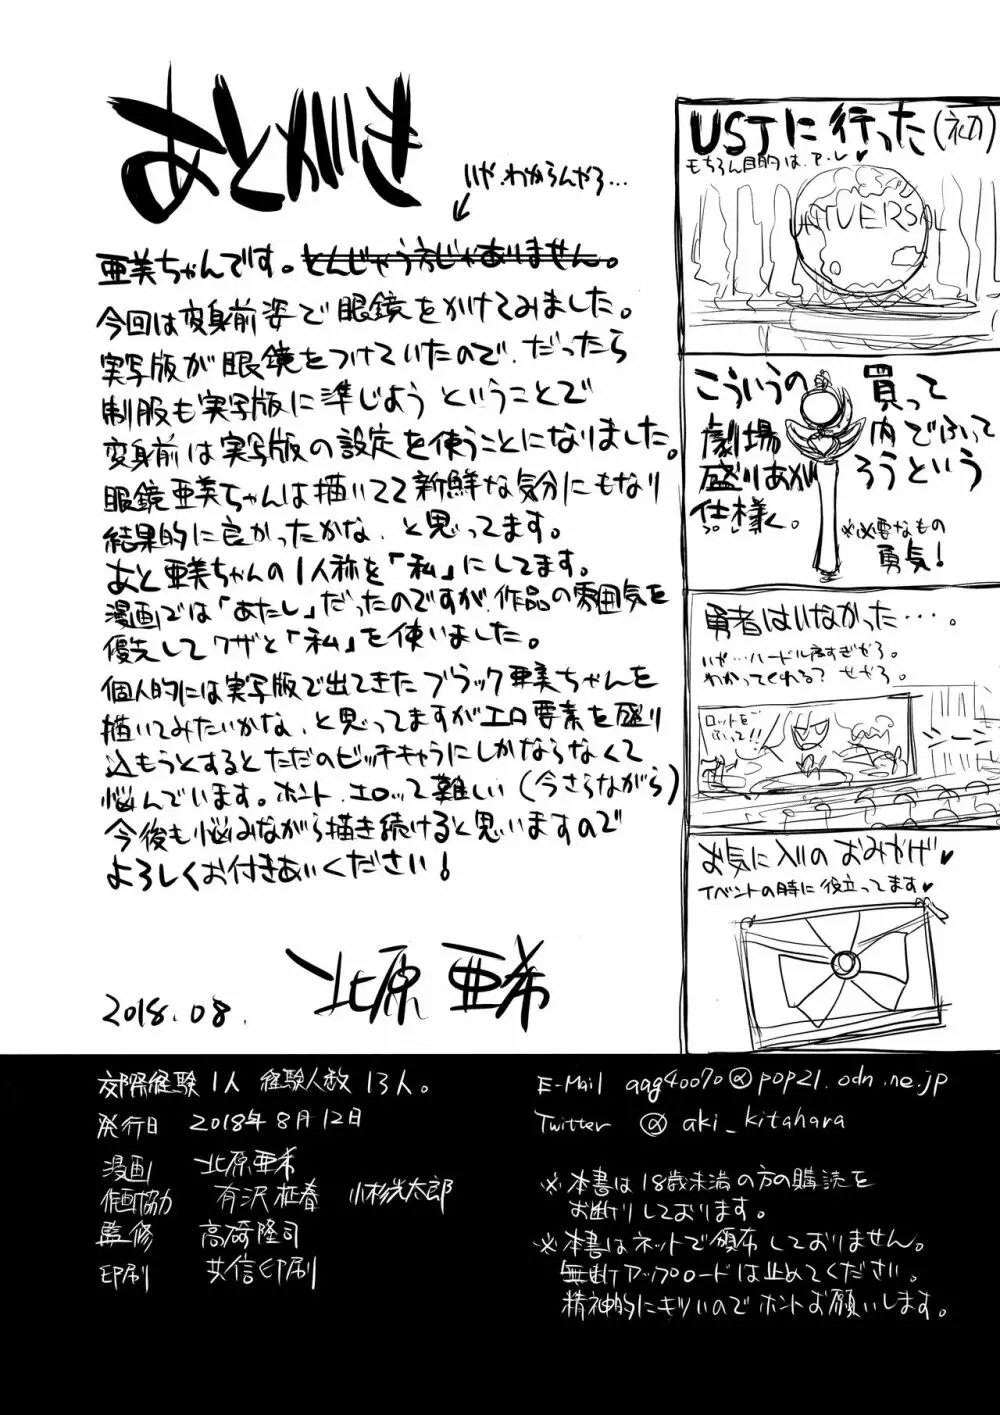 あとがき
いや、わからんやろ…
亜美ちゃんです。とんじゃう方じゃありません。
今回は変身前姿で眼鏡をかけてみました。
実写版が眼鏡をつけていたので、だったら
制服も実写版に準じよう ということで
変身前は実写版の設定を使うことになりました。
眼鏡亜美ちゃんは描いてて新鮮な気分にもなり
結果的に良かったかな、と思ってます。
あと亜美ちゃんの1人称を「私」にしてます。
漫画では「あたし」だったのですが、作品の雰囲気を
優先してワザと「私」を使いました。
個人的には実写版で出てきたブラック亜美ちゃんを
描いてみたいかな、と思ってますがエロ要素を盛り
込もうとするとただのビッチキャラにしかならなくて
悩んでいます。ホント、エロって難しい(今さらながら)
今後も悩みながら描き続けると思いますので
よろしくお付きあいください!
2018.08.
北原亜希
USJに行った(初)
もちろん目的はア・レ♥
UNIVERSAL
こういうの買って
劇場内でふって
盛りあがろうという
仕様く。
※必要なもの
勇気!
勇者はいなかった・・・・。
いや…ハードル高すぎだろ。
わかってくれる? せやろ。
ロットを
ふって!!
シーン
お気に入りのおみやげ♥
イベントの時に役立ってます♥
交際経験 1人 経験人数 13人。
発行日 2018年8月12日
漫画 北原亜希
作画協力 有沢 征春 小杉光太郎
監修 高崎隆司
印刷 共信印刷
E-Mail qqg40070@pop21.odn.ne.jp
Twitter @aki_kitahara
※本書は18歳未満の方の購読を
お断りしております。
※本書はネットで頒布しておりません。
無断アップロードは止めてください。
精神的にキツいのでホントお願いします。